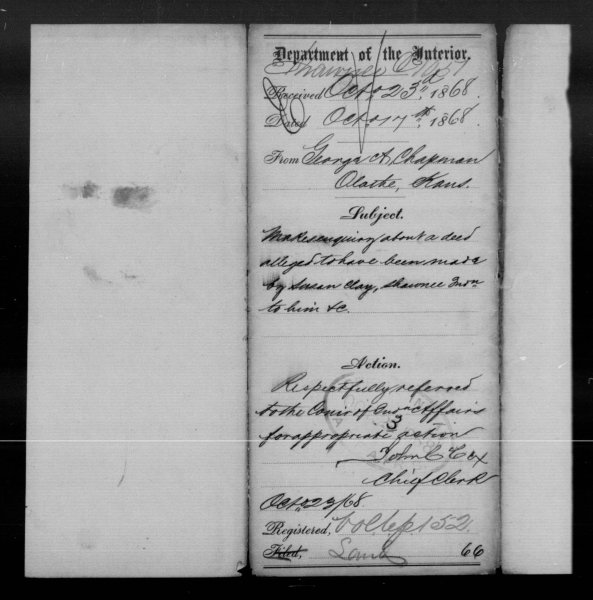 Department of the Interior.
Shawnee C 951
Received Octo 23d 1868.
Dated Octo 17th 1868.
From George A. Chapman
Olathe, Kans.
Subject.
Makes enquiry about a deed
alleged to have been made
by Susan Clay, Shawnee Indn
to him &c.
Action.
Respectfully referred
to the Comr of Indn Affairs
for appropriate action
John C Cox
Chief Clerk
Octo 23/68
Registered, Vol 6 p 152
Filed, Land 66